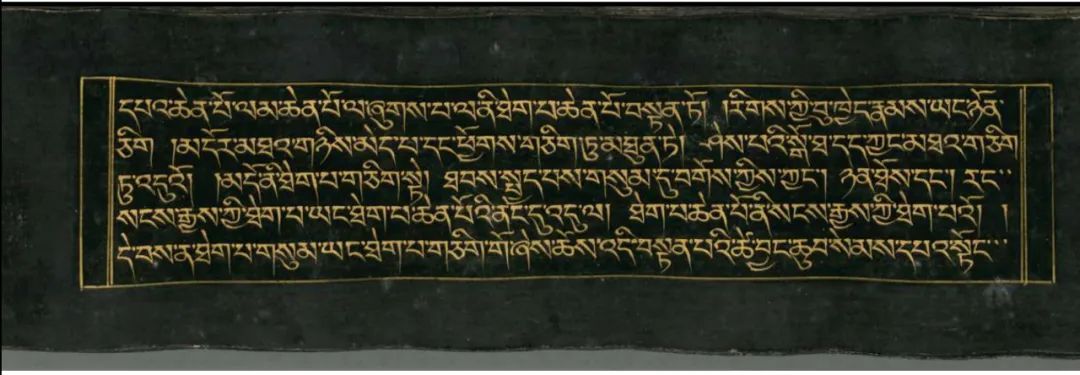 དཔའ་ཆེན་པོ་ལམ་ཆེན་པོ་ལ་ཞུགས་པ་ལ་ནི་ཐེག་པ་ཆེན་པོ་བསྟན་ཏོ། །རིགས་ཀྱི་བུ་ཁྱེད་རྣམས་ཡང་ཉོན་
ཅིག །མདོར་མཐའ་གཉིས་མེད་པ་དང་ཕྱོགས་གཅིག་ཏུ་མཐུན་ཏེ། ཤེས་པའི་སྒོ་ཐ་དད་ཀྱང་མཐའ་གཅིག
ཏུ་འདུའོ། །མདོ་ནི་ཐེག་པ་གཅིག་སྟེ། ཐབས་སྤྱད་པས་གསུམ་དུ་བགོས་ཀྱིས་ཀྱང་། ཉན་ཐོས་དང་། རང་
སངས་རྒྱས་ཀྱི་ཐེག་པ་ཡང་ཐེག་པ་ཆེན་པོའི་ནང་དུ་འདུ་ལ། ཐེག་པ་ཆེན་པོ་ནི་སངས་རྒྱས་ཀྱི་ཐེག་པའོ། །
དེ་བས་ན་ཐེག་པ་གསུམ་ཡང་ཐེག་པ་གཅིག་གོ་ཞེས་ཆོས་འདི་བསྟན་པའི་ཚེ་བྱང་ཆུབ་སེམས་དཔའ་སྟོང་